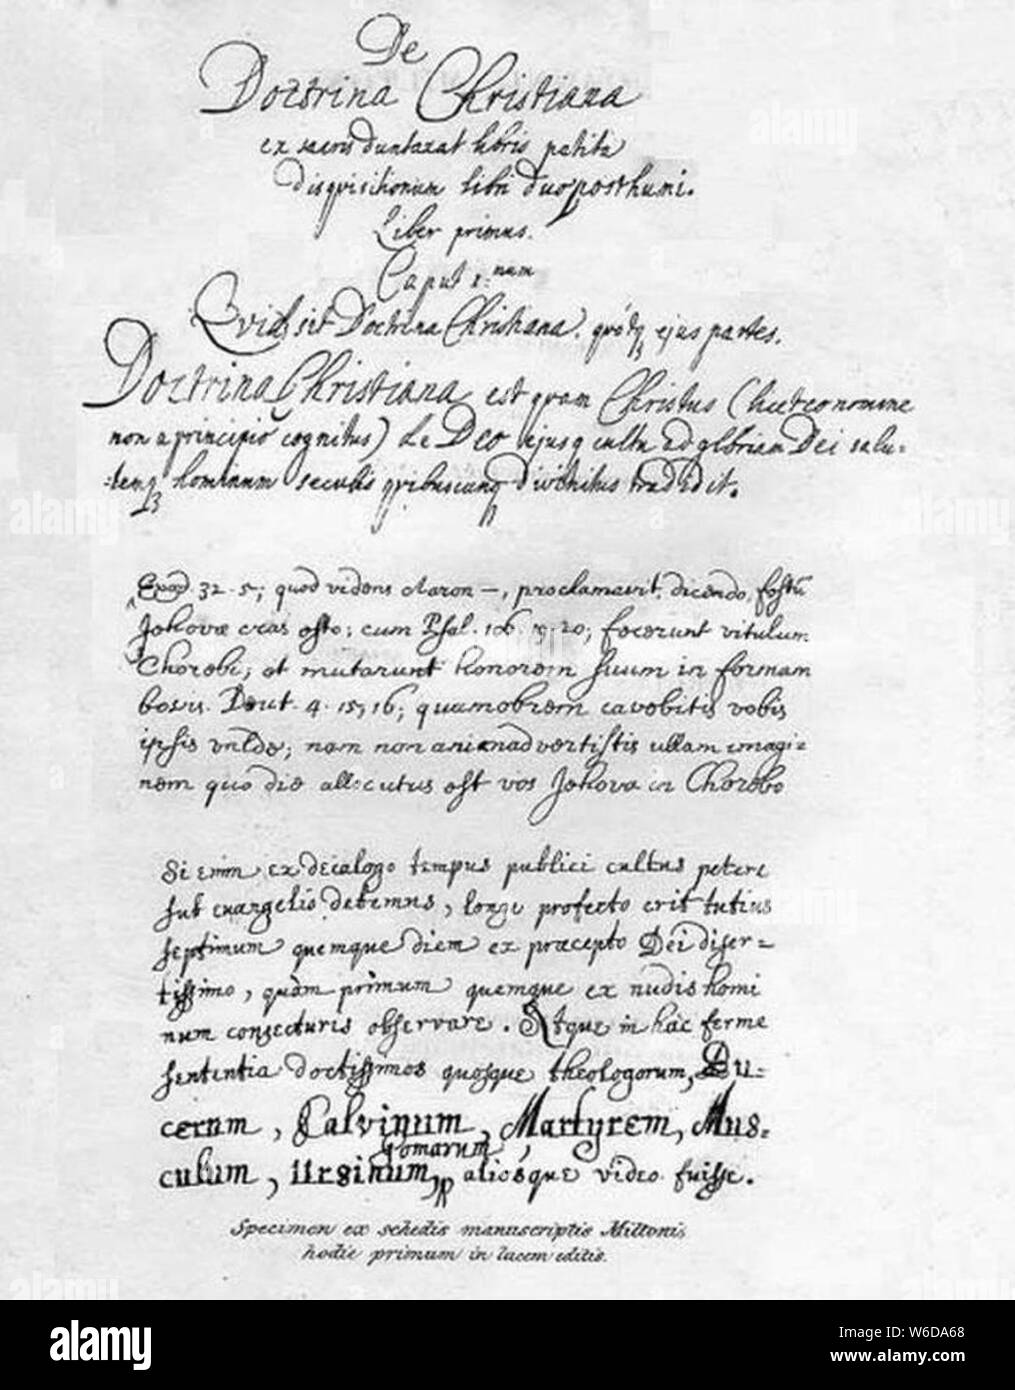 De
Doctrina Christiana
ex sacris duntaxat libris petita
disquisitionum libri duo posthumi.
Liber primus.
Caput 1.num
Quid sit Doctrina Christiana, quotq; ejus partes.
Doctrina Christiana est quam Christus (licet eo nomine
non a principio cognitus) de Deo ejusq cultu ad gloriam Dei salu-
-temq; hominum seculis quibuscunq divinitus tradidit.
Exod. 32. 5; quod videns Aaron —, proclamavit, dicendo, festū
Jehovæ cras esto; cum Psal. 106. 19. 20; fecerunt vitulum
Chorebi; et mutarunt honorem suum in formam
bovis. Deut. 4. 15, 16; quamobrem cavebitis vobis
ipsis valde; nam non animadvertistis ullam imagi-
nem quo die allocutus est vos Jehova in Chorebo
Si enim ex decalogo tempus publici cultus petere
sub euangelio debemus, longe profecto erit tutius
septimum quemque diem ex præcepto Dei diser-
tissimo, quàm primum quemque ex nudis homi
num conjecturis observare. Atque in hâc ferme
sententia doctissimos quosque theologorum, Bu-
cerum, Calvinum, Martyrem, Mus-
culum, Ursinum, Gomarum, aliosque video fuisse.
Specimen ex schedis manuscriptis Miltonis
hodie primum in lucem editis.
alamy
Image ID: W6DA68
www.alamy.com